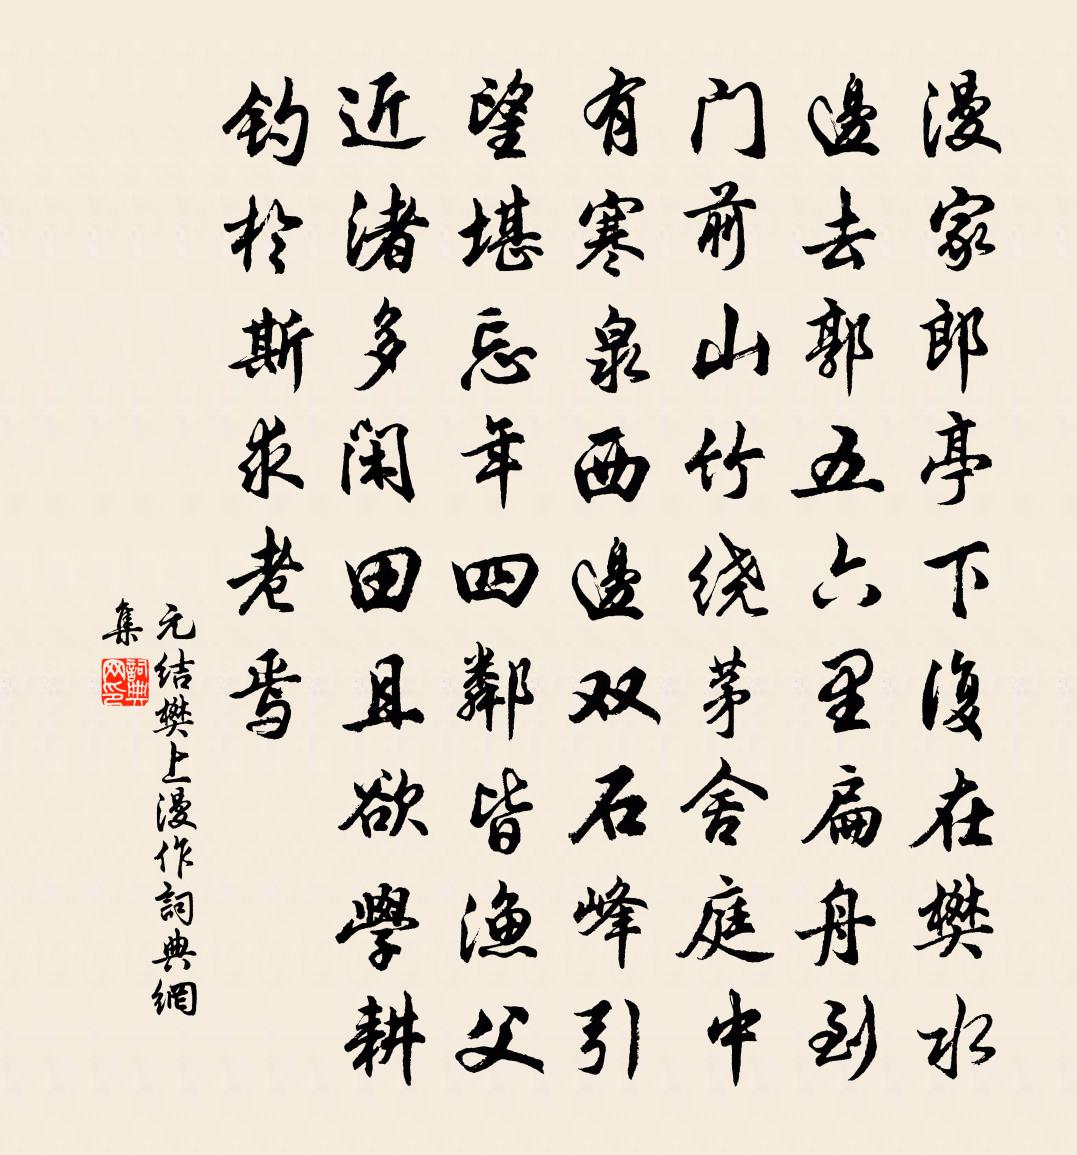 漫家郎亭下復在樊水
邊去郭五六里扁舟到
门前山竹绕茅舍庭中
有寒泉西邊双石峰引
望堪忘年四鄰皆漁父
近渚多闲田且欲學耕
钓於斯求老焉
元结樊上漫作詞典網
集
詞典
网印